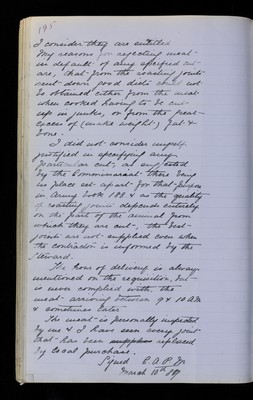 195
I consider they are entitled
My reasons for rejecting meat
in default of any specified cut
are, that from the roasting joints
sent down good diets could not
be obtained either from the meat
when cooked having to be cut
up in junks, or from the great
excess of (make weight) fat &
bone.
I did not consider myself
justified in specifying any
particular cut, as suggested
by the Commissariat there being
no place set apart for that purpose
in Army Book & as the quality
of roasting joints depends entirely
on the part of the animal from
which they are cut, the best
joints are not supplied even when
the contractor is informed by the
Steward.
The hour of delivery is always
mentioned on the requisition, but
is never complied with, the
meat arriving between 9 & 10 A.M
& sometimes later
The meat is personally inspected
by me & I have seen every joint
that has been supplied replaced
by local purchase.
Signed E. A. P.
March 10th